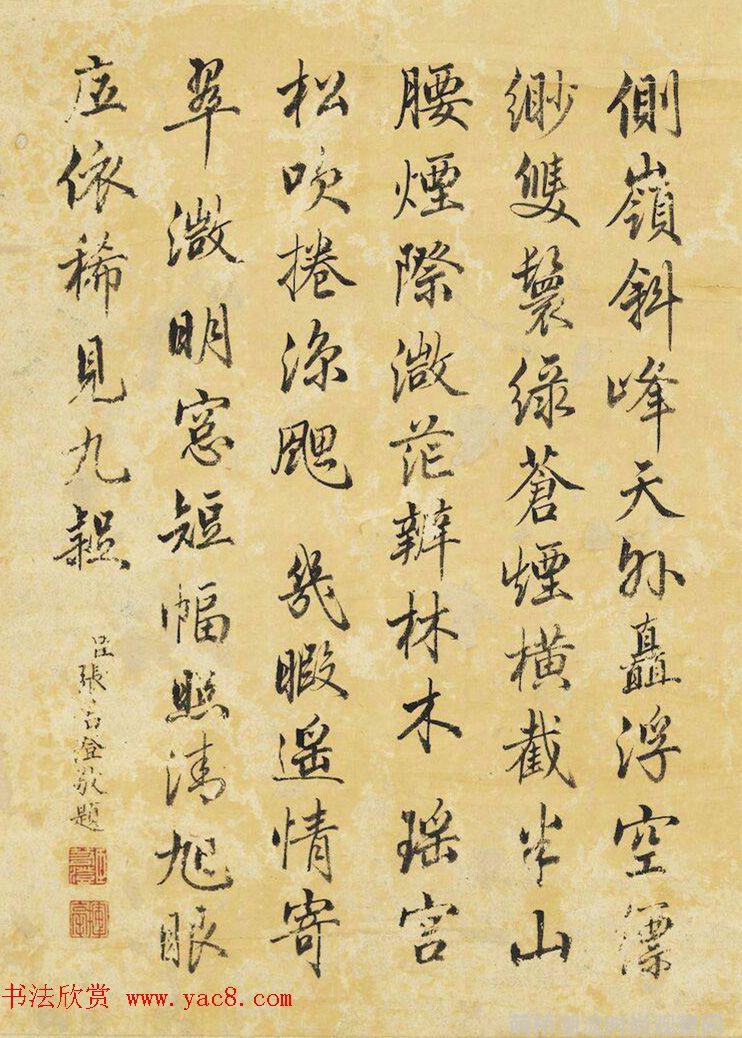 側嶺斜峰天外矗浮空縹
緲雙鬟綠蒼煙橫截半山
腰煙際微茫辨林木 瑤宮
松吹捲涼颸 幾暇遙情寄
翠微明窓短幅照清旭眼
底依稀見九疑
臣張若澄敬題
书法欣赏 www.yac8.com